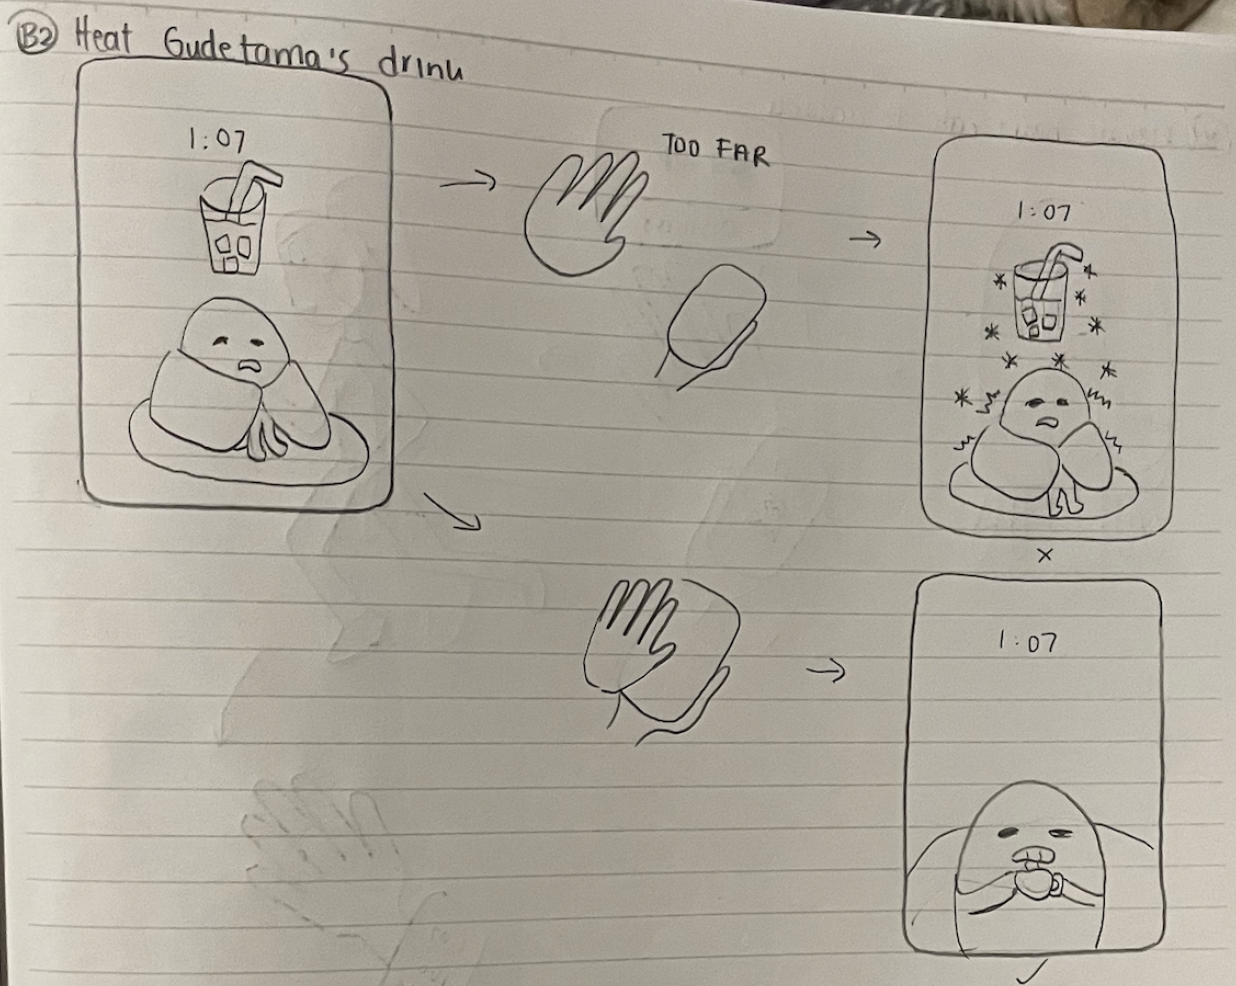 B2 Heat Gudetama's drink
1:07
TOO FAR
1:07
1:07